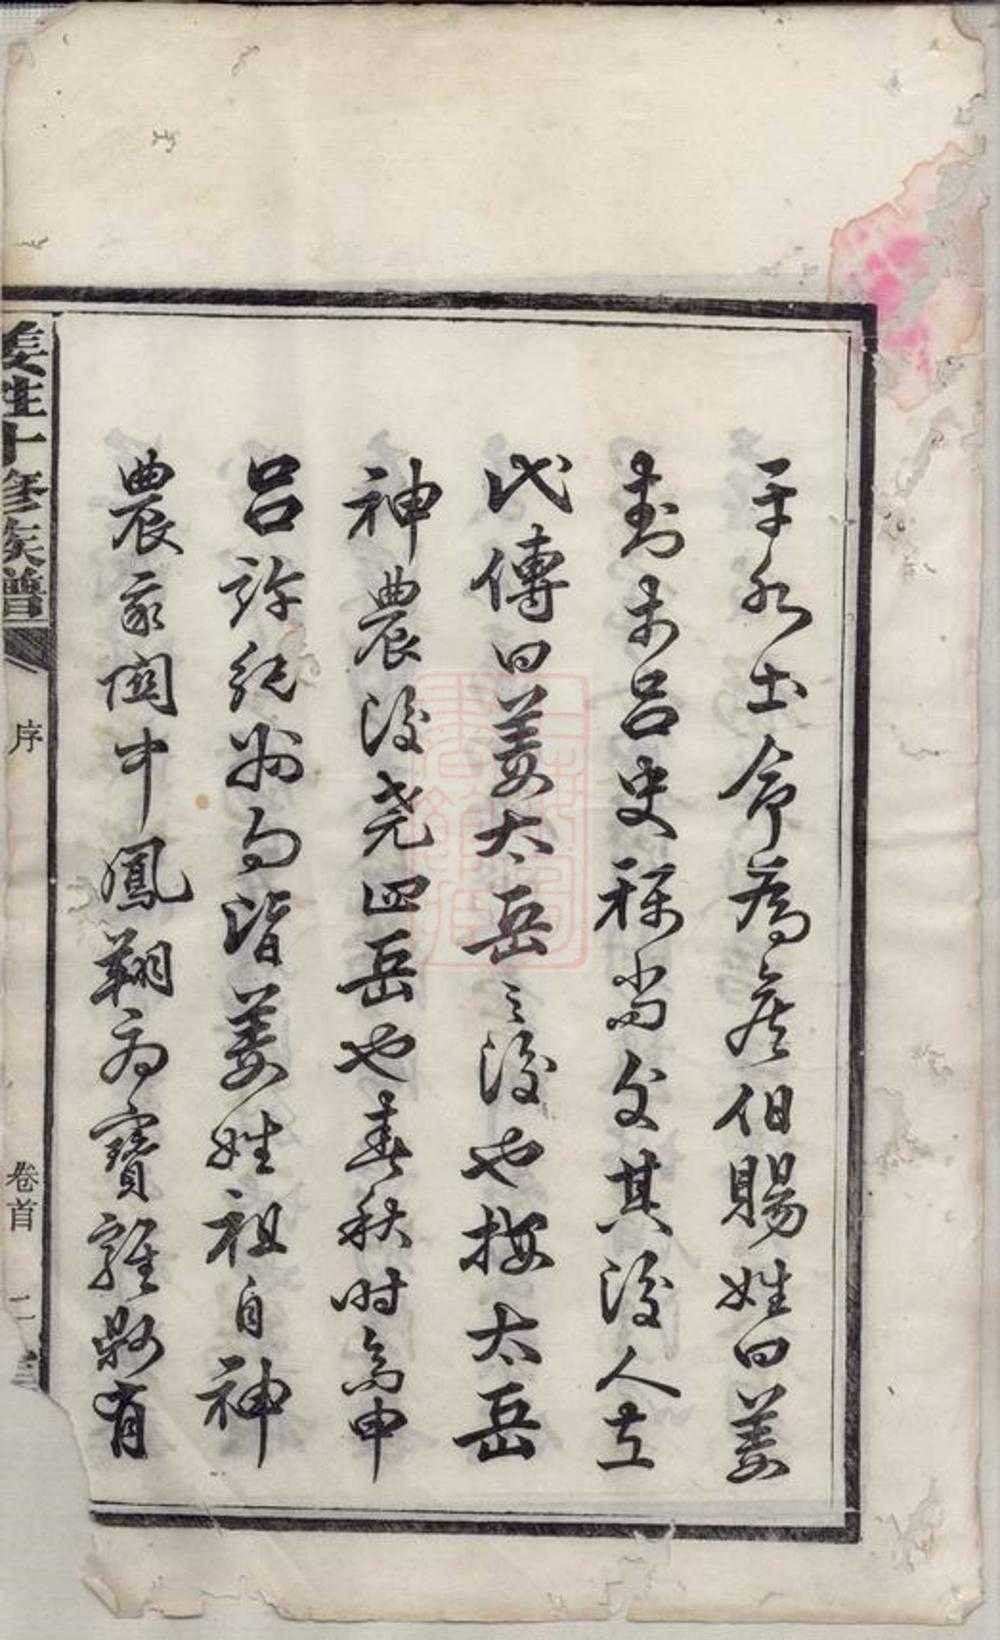 平水土命為侯伯賜姓曰姜
封于呂史稱尚父其後人立
代傳曰姜太岳之後也按太岳
神農後堯四岳也春秋時齊申
呂許紀州向皆姜姓祖自神
農家關中鳳翔府寶雞縣有
姜姓十修族譜
序
卷首
二